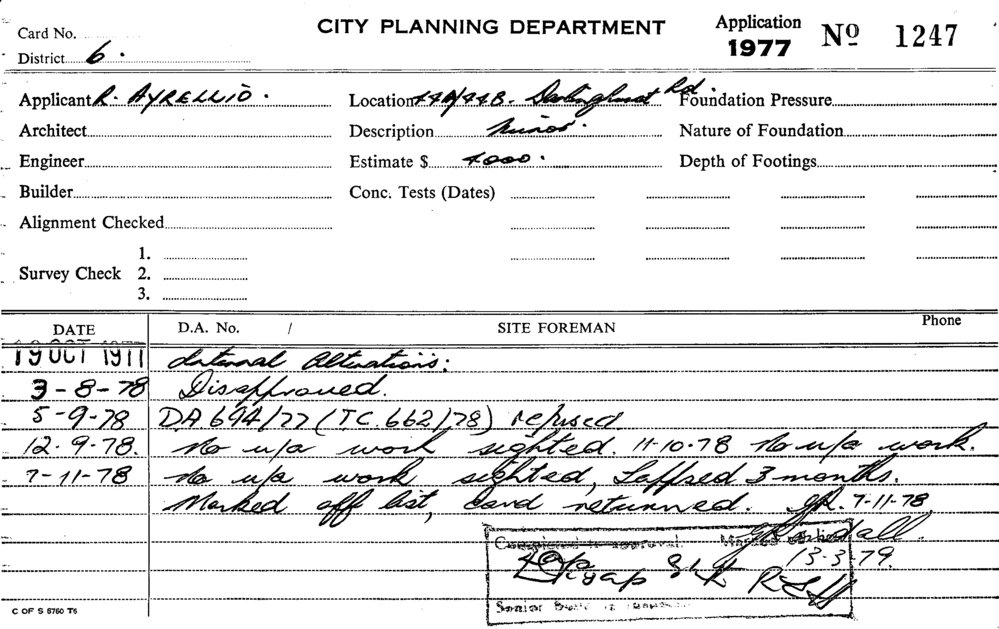 CITY PLANNING DEPARTMENT
Application
1977 Nº 1247
Card No.
District 6.
Applicant R. AYRELLIO. Location 44A/44B. Darlinghurst Rd. Foundation Pressure
Architect Description Minor. Nature of Foundation
Engineer Estimate $ 4000. Depth of Footings
Builder Conc. Tests (Dates)
Alignment Checked
1.
Survey Check 2.
3.
DATE D.A. No. / SITE FOREMAN Phone
19 OCT 1977 Internal Alterations.
3-8-78 Disapproved.
5-9-78 DA 694/77 (TC 662/78) refused
12.9.78. No u/a work sighted. 11-10-78 No u/a work.
7-11-78 No u/a work sighted, Lapsed 3 months.
Marked off list, card returned. 7-11-78
Completed to approval Marked
13-3-79.
Senior
C OF S 5760 T6